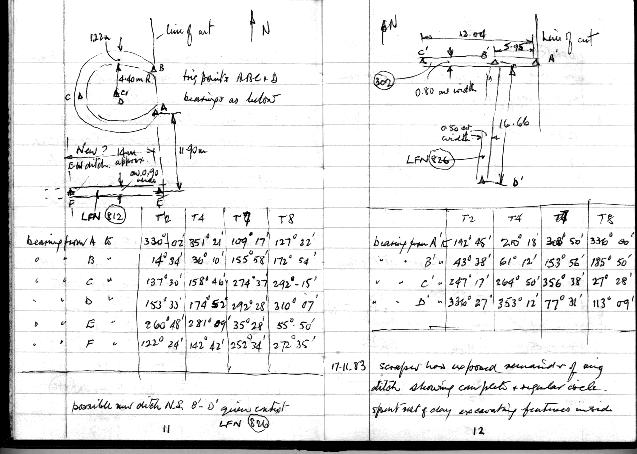 122m
line of cut
N
B
4.40m
trig points A B C + D
bearings as below
C
D
A
New?
14m
E-W ditch approx.
11.90m
av. 0.90
wide
F
E
LFN 812
T2 T4 T7 T8
bearing from A to 330° 02' 351° 21' 109° 17' 127° 22'
" " B " 14° 34' 36° 10' 155° 58' 172° 54'
" " C " 137° 30' 158° 46' 274° 37' 292° 15'
" " D " 153° 33' 174° 52' 292° 28' 310° 07'
" " E " 260° 48' 281° 09' 35° 28' 55° 50'
" " F " 122° 24' 142° 42' 252° 34' 272° 35'
possible new ditch N.S. B'- D' given context
LFN 826
11
N
12.04
5.95
line of cut
C'
B'
A'
302
0.80 av width
0.50 av.
width
16.66
LFN 826
D'
T2 T4 T7 T8
bearing from A' to 192° 45' 210° 18' 308° 50' 336° 00'
" " B' " 43° 38' 61° 12' 153° 52' 185° 50'
" " C' " 247° 17' 264° 50' 356° 38' 27° 28'
" " D' " 336° 27' 353° 12' 77° 31' 113° 09'
17.11.83 scraper has exposed remainder of ring
ditch showing complete + regular circle.
spent rest of day excavating features
12